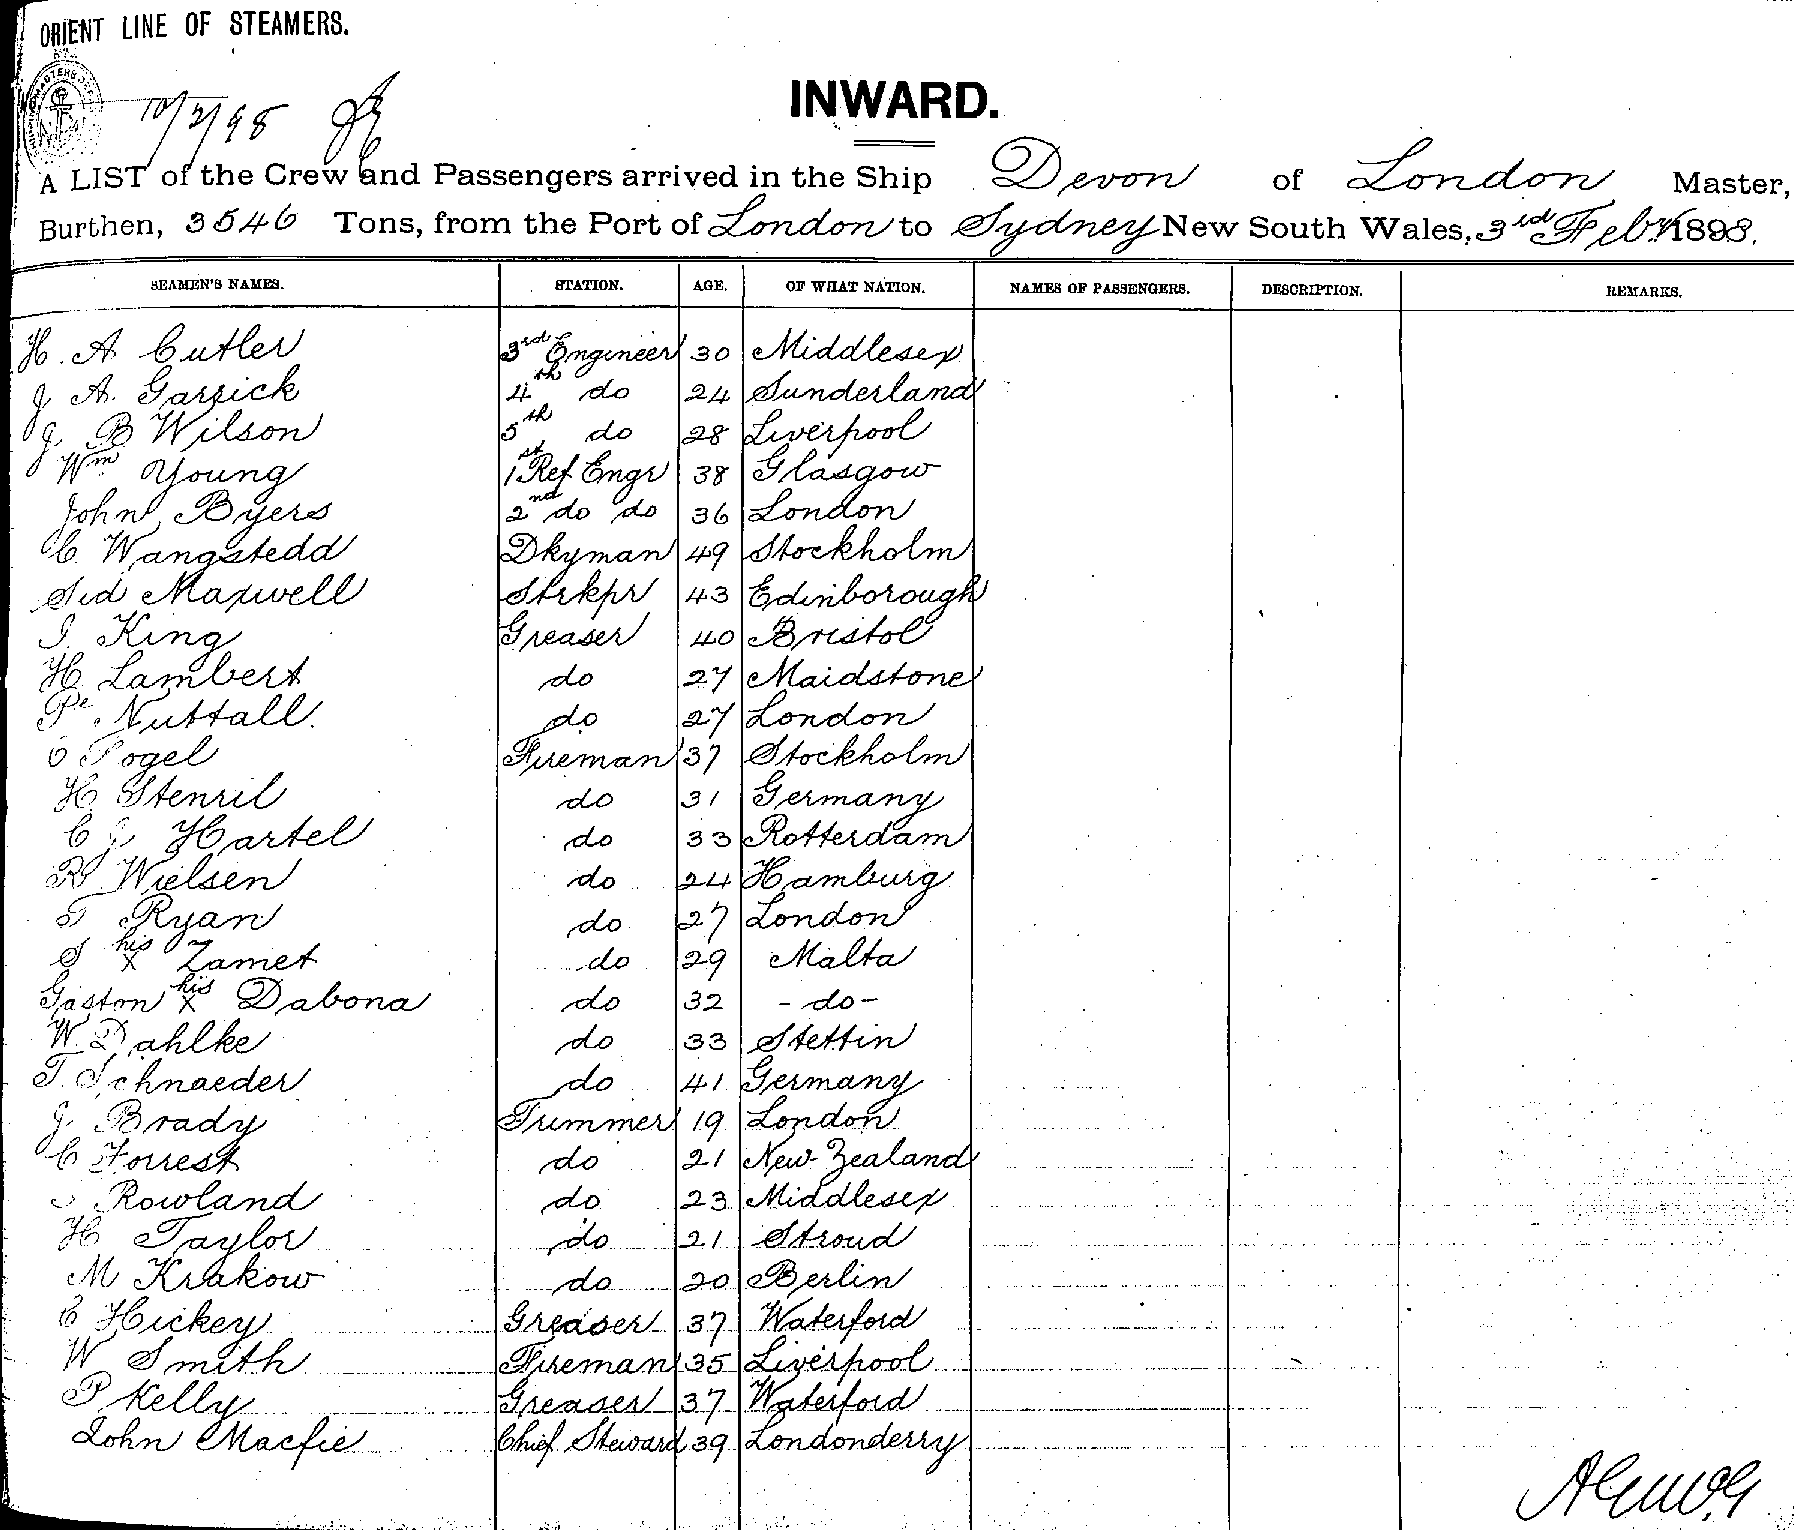 ORIENT LINE OF STEAMERS.
10/2/98
INWARD.
A LIST of the Crew and Passengers arrived in the Ship Devon of London Master,
Burthen, 3546 Tons, from the Port of London to Sydney New South Wales, 3rd Feby 1898.
SEAMEN'S NAMES. STATION. AGE. OF WHAT NATION. NAMES OF PASSENGERS. DESCRIPTION. REMARKS.
H. A Cutler 3rd Engineer 30 Middlesex
J A. Garrick 4th do 24 Sunderland
J B Wilson 5th do 28 Liverpool
Wm Young 1st Ref Engr 38 Glasgow
John Byers 2nd do do 36 London
C Wangstedd Dkyman 49 Stockholm
Sid Maxwell Strkpr 43 Edinborough
J. King Greaser 40 Bristol
H Lambert do 27 Maidstone
Pe Nuttall. do 27 London
O Fogel Fireman 37 Stockholm
H Stenril do 31 Germany
C J Hartel do 33 Rotterdam
R Wielsen do 24 Hamburg
T Ryan do 27 London
S his X Zamet do 29 Malta
Gaston his X Dabona do 32 - do -
W. Dahlke do 33 Stettin
T. Schnaeder do 41 Germany
J. Brady Trimmer 19 London
C Forrest do 21 New Zealand
Rowland do 23 Middlesex
H Taylor do 21 Stroud
M Krakow do 20 Berlin
C Hickey Greaser 37 Waterford
W Smith Fireman 35 Liverpool
P Kelly Greaser 37 Waterford
John Macfie Chief Steward 39 Londonderry